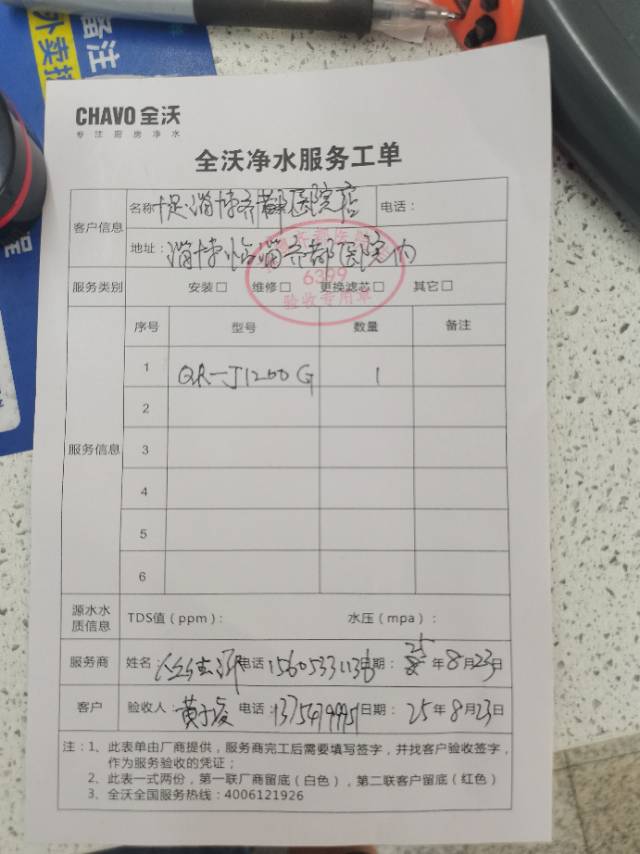 备注
外卖
CHAVO 全沃
专注厨房净水
全沃净水服务工单
客户信息 名称 淄博齐都医院店 电话：
地址： 淄博临淄齐都医院内
齐都医
6399
验收专用章
服务类别 安装□ 维修□ 更换滤芯□ 其它□
服务信息 序号 型号 数量 备注
1 QR-J1200G 1
2
3
4
5
6
源水水质信息 TDS值（ppm）： 水压（mpa）：
服务商 姓名： 电话 15605331138 日期： 25年8月23日
客户 验收人： 黄 电话： 日期： 25年8月23日
注：1、此表单由厂商提供，服务商完工后需要填写签字，并找客户验收签字，
作为服务验收的凭证；
2、此表一式两份，第一联厂商留底（白色），第二联客户留底（红色）
3、全沃全国服务热线：4006121926